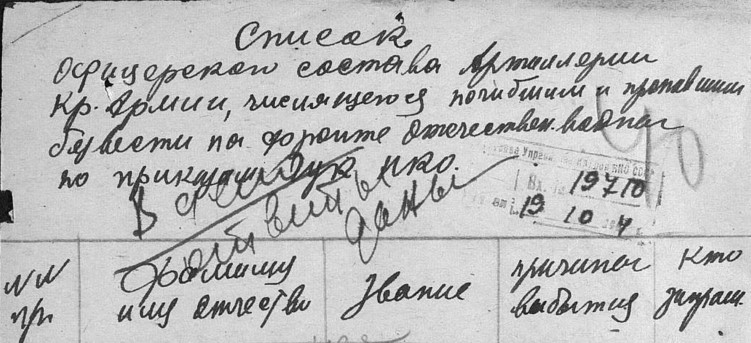 Список
офицерского состава Артиллерии
Кр. Армии, числящегося погибшим и пропавшим
безвести на фронте отечествен. войны
по приказам ГУК НКО.
Вх. № 19710
19 10 4
NN
пр.
Фамилия
имя отчество
Звание
причина
выбытия
Кто
запраш.